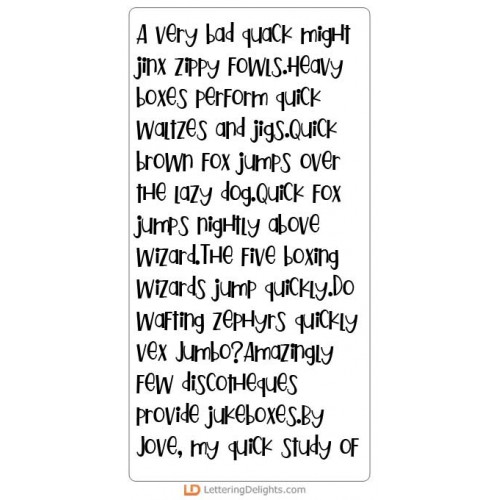 A very bad quack might
jinx zippy fowls.Heavy
boxes perform quick
waltzes and jigs.Quick
brown fox jumps over
the lazy dog.Quick fox
jumps nightly above
wizard.The five boxing
wizards jump quickly.Do
wafting zephyrs quickly
vex Jumbo?Amazingly
few discotheques
provide jukeboxes.By
Jove, my quick study of
LD LetteringDelights.com